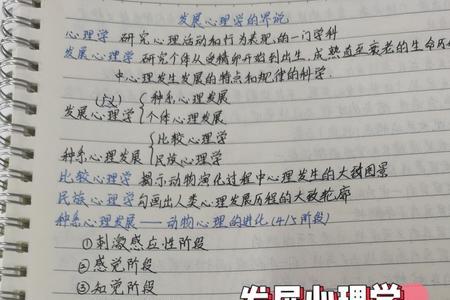 发展心理学的界说
心理学 研究心理活动和行为表现的一门学科
发展心理学 研究个体从受精卵开始到出生、成熟直至衰老的生命历
中心理发生发展的特点和规律的科学.
(广义) 种系心理发展
发展心理学 个体心理发展
比较心理学
种系心理发展
民族心理学
比较心理学 揭示动物演化过程中心理发生的大致图景
民族心理学 勾画出人类心理发展历程的大致轮廓
种系心理发展——动物心理的进化(4/5阶段)
①刺激感应性阶段
②感觉阶段
③知觉阶段
发展心理学